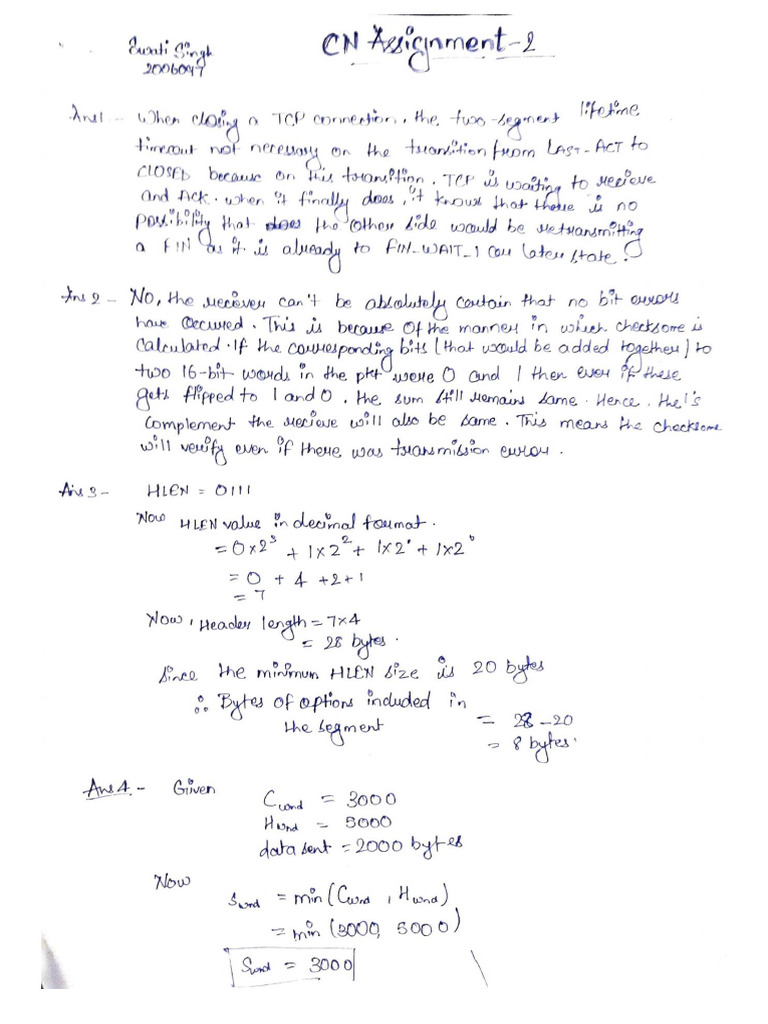 Swati Singh
2006047
CN Assignment-2
Ans1 - When closing a TCP connection, the two-segment lifetime
timeout not necessary on the transition from LAST-ACT to
CLOSED because on this transition. TCP is waiting to recieve
and ACK. when it finally does, it knows that there is no
possibility that does the other side would be retransmitting
a FIN as it is already to FIN_WAIT_1 (or later state.
Ans 2 - No, the reciever can't be absolutely certain that no bit errors
have occured. This is because of the manner in which checksome is
calculated. If the corresponding bits (that would be added together) to
two 16-bit words in the pkt were 0 and 1 then even if these
gets flipped to 1 and 0, the sum still remains same. Hence, the 1's
complement the recieve will also be same. This means the checksome
will verify even if there was transmission error.
Ans 3 - HLEN = 0111
Now HLEN value in decimal format.
= 0×2³ + 1×2² + 1×2¹ + 1×2⁰
= 0 + 4 + 2 + 1
= 7
Now, Header length = 7×4
= 28 bytes.
Since the minimum HLEN size is 20 bytes
∴ Bytes of options included in
the segment = 28 - 20
= 8 bytes.
Ans 4. - Given
Cwnd = 3000
Hwnd = 5000
data sent = 2000 bytes
Now
Swnd = min(Cwnd, Hwnd)
= min (3000, 5000)
Swnd = 3000